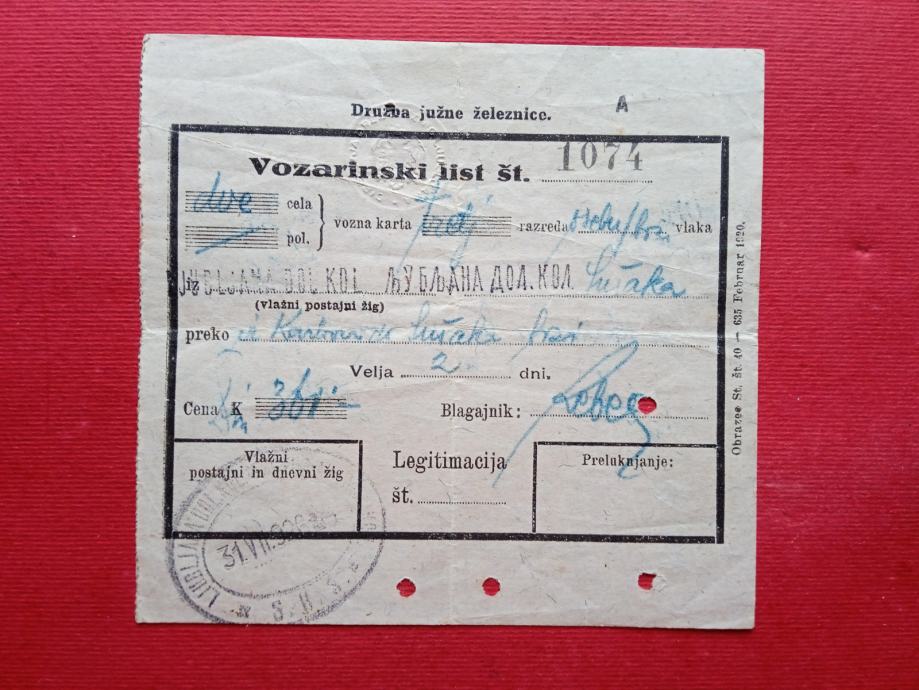 Družba južne železnice.
A
Vozarinski list št. 1074
dve cela
pol.
vozna karta razreda vlaka
iz LJUBLJANA DOL. KOL. ЉУБЉАНА ДОЛ. КОЛ. Sušaka
(vlažni postajni žig)
preko Sušaka
Velja 2 dni.
Cena K
Din
Blagajnik:
Vlažni
postajni in dnevni žig
Legitimacija
št.
Preluknjanje:
31.VII.926
S.H.S.
Obrazec St. št. 40 — 635 Februar 1920.